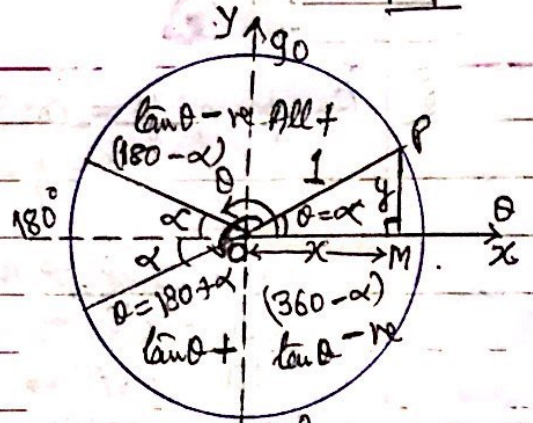 y
90
tanθ -ve All +
(180-α)
P
θ
1
y
180°
α
θ=α
θ
O
x
M
x
α
θ=180+α
(360-α)
tanθ +
tanθ -ve